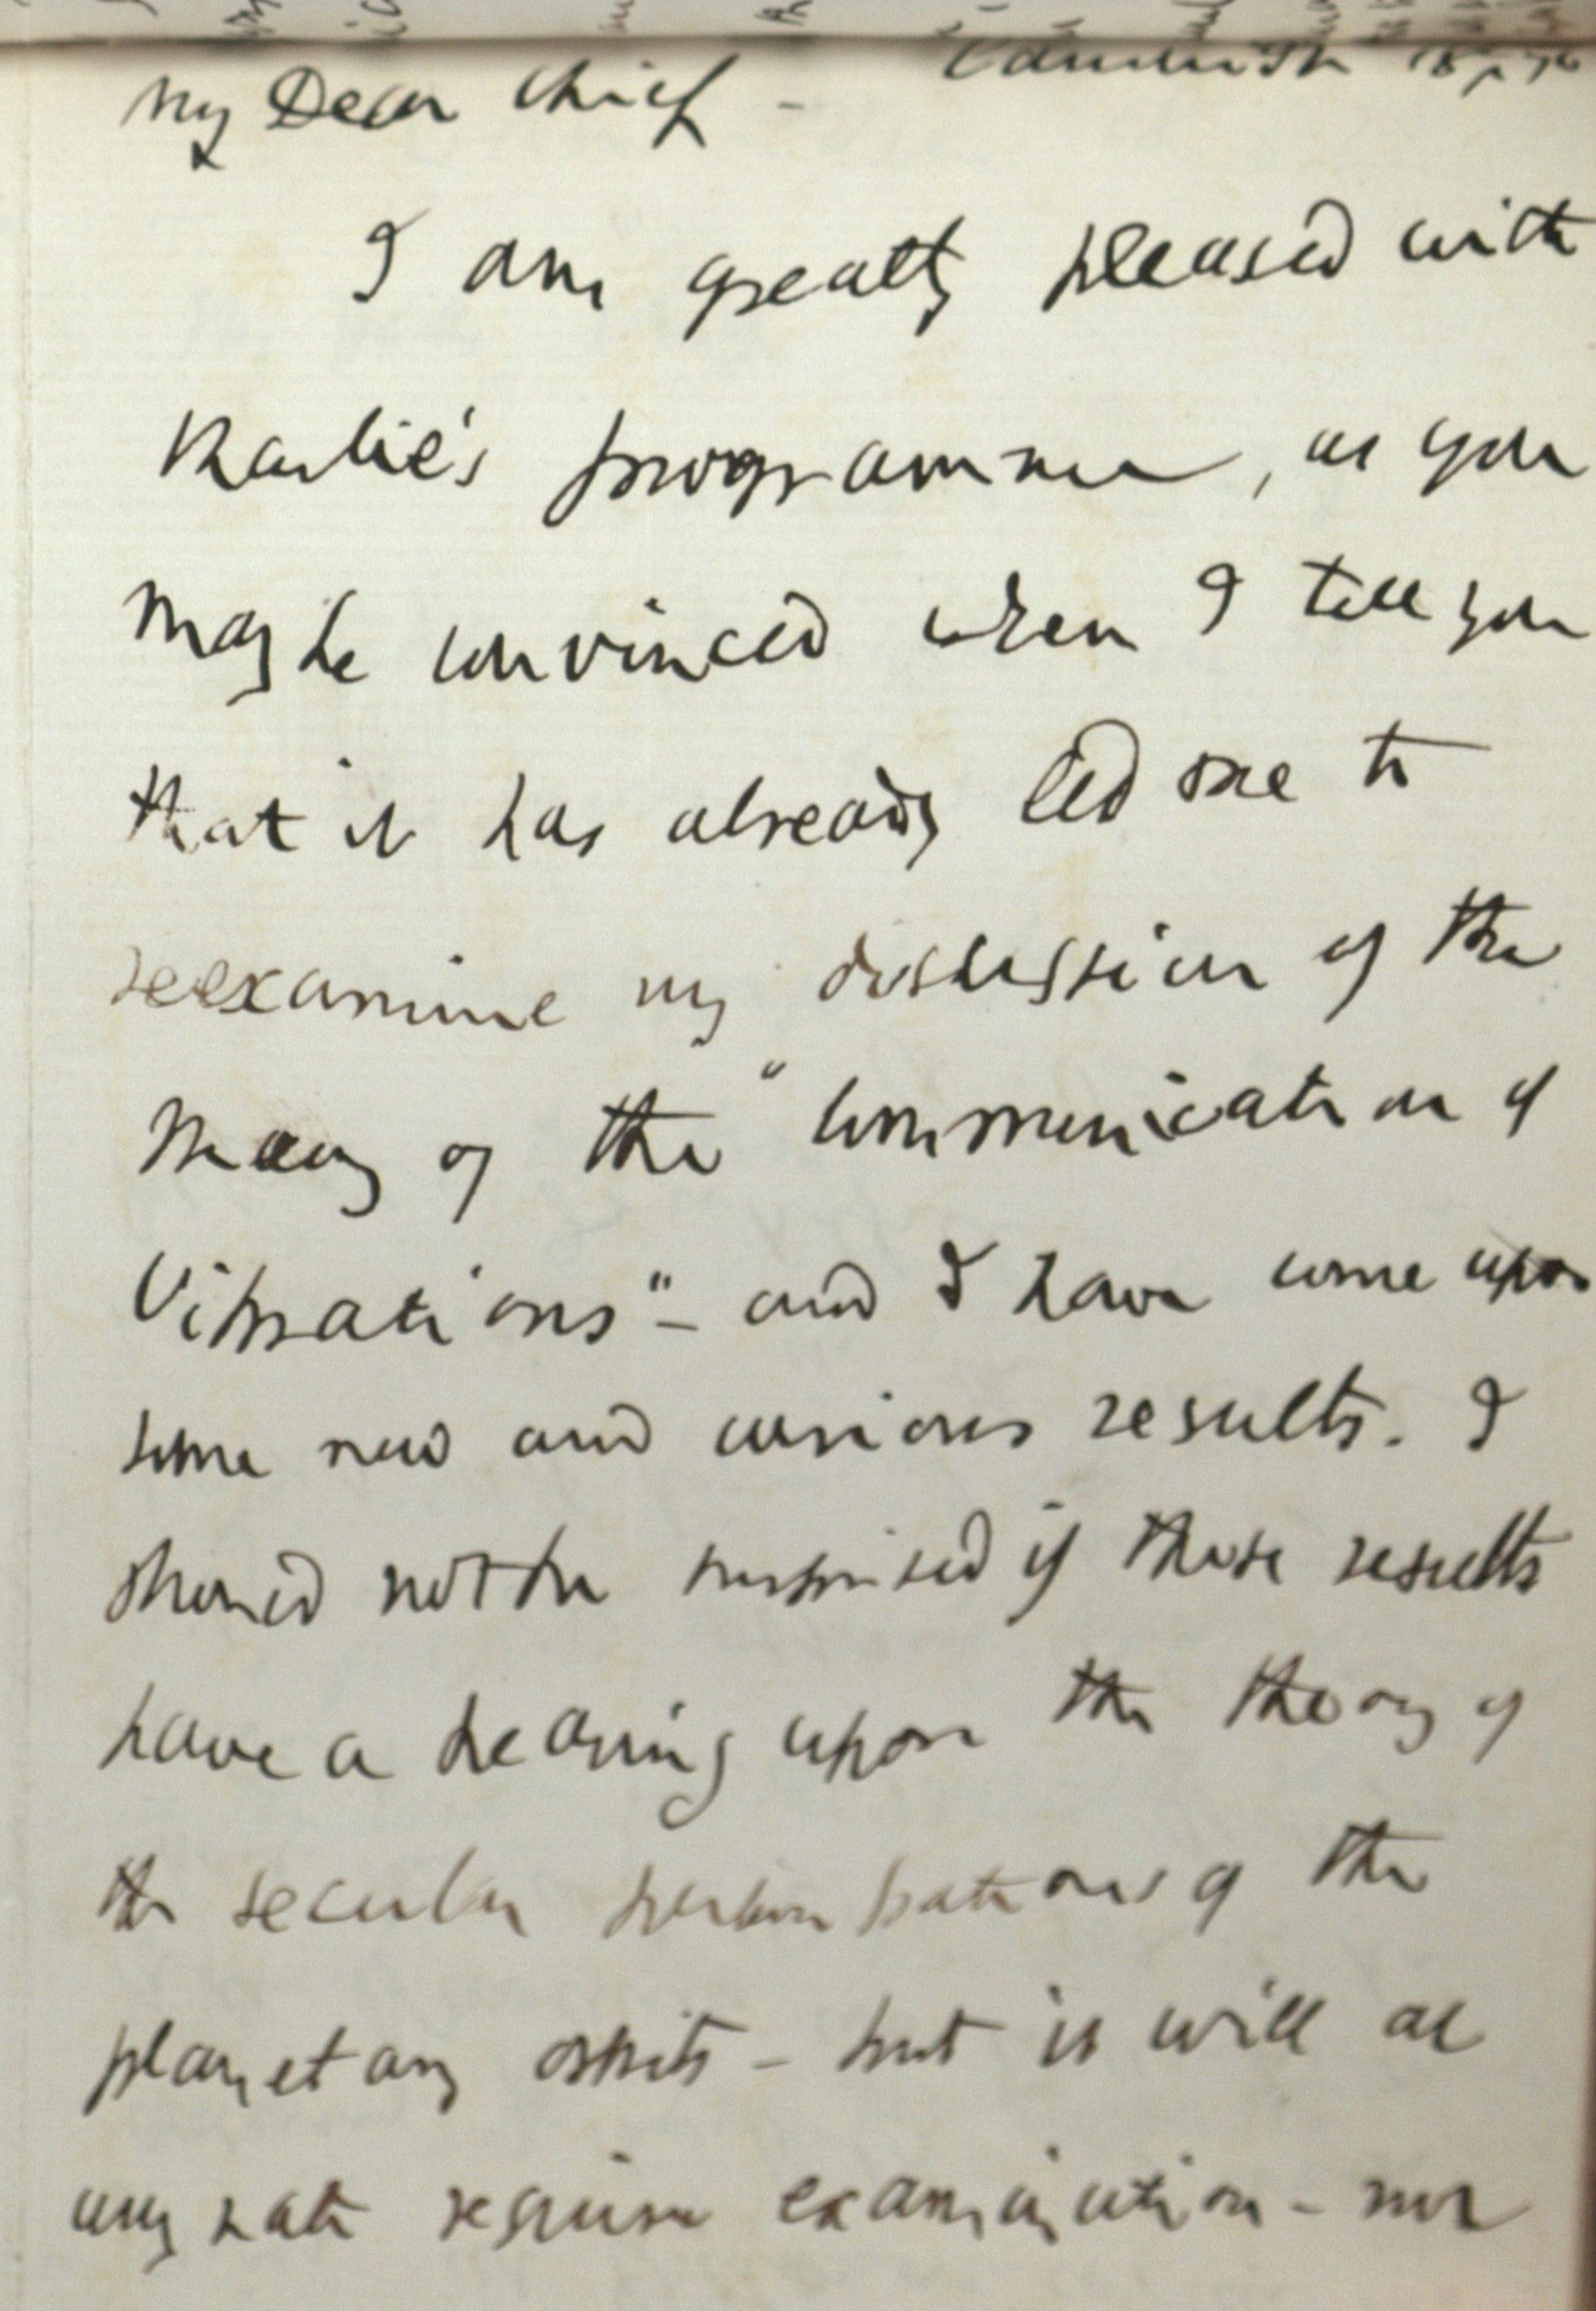 My Dear Chief -
I am greatly pleased with
programme, as you
may be convinced when I tell you
that it has already led me to
reexamine my discussion of the
theory of the "Communication of
Vibrations" - and I have come upon
some new and curious results. I
should not be surprised if these results
have a bearing upon the theory of
the secular perturbations of the
planetary orbits - but it will at
any rate require examination -